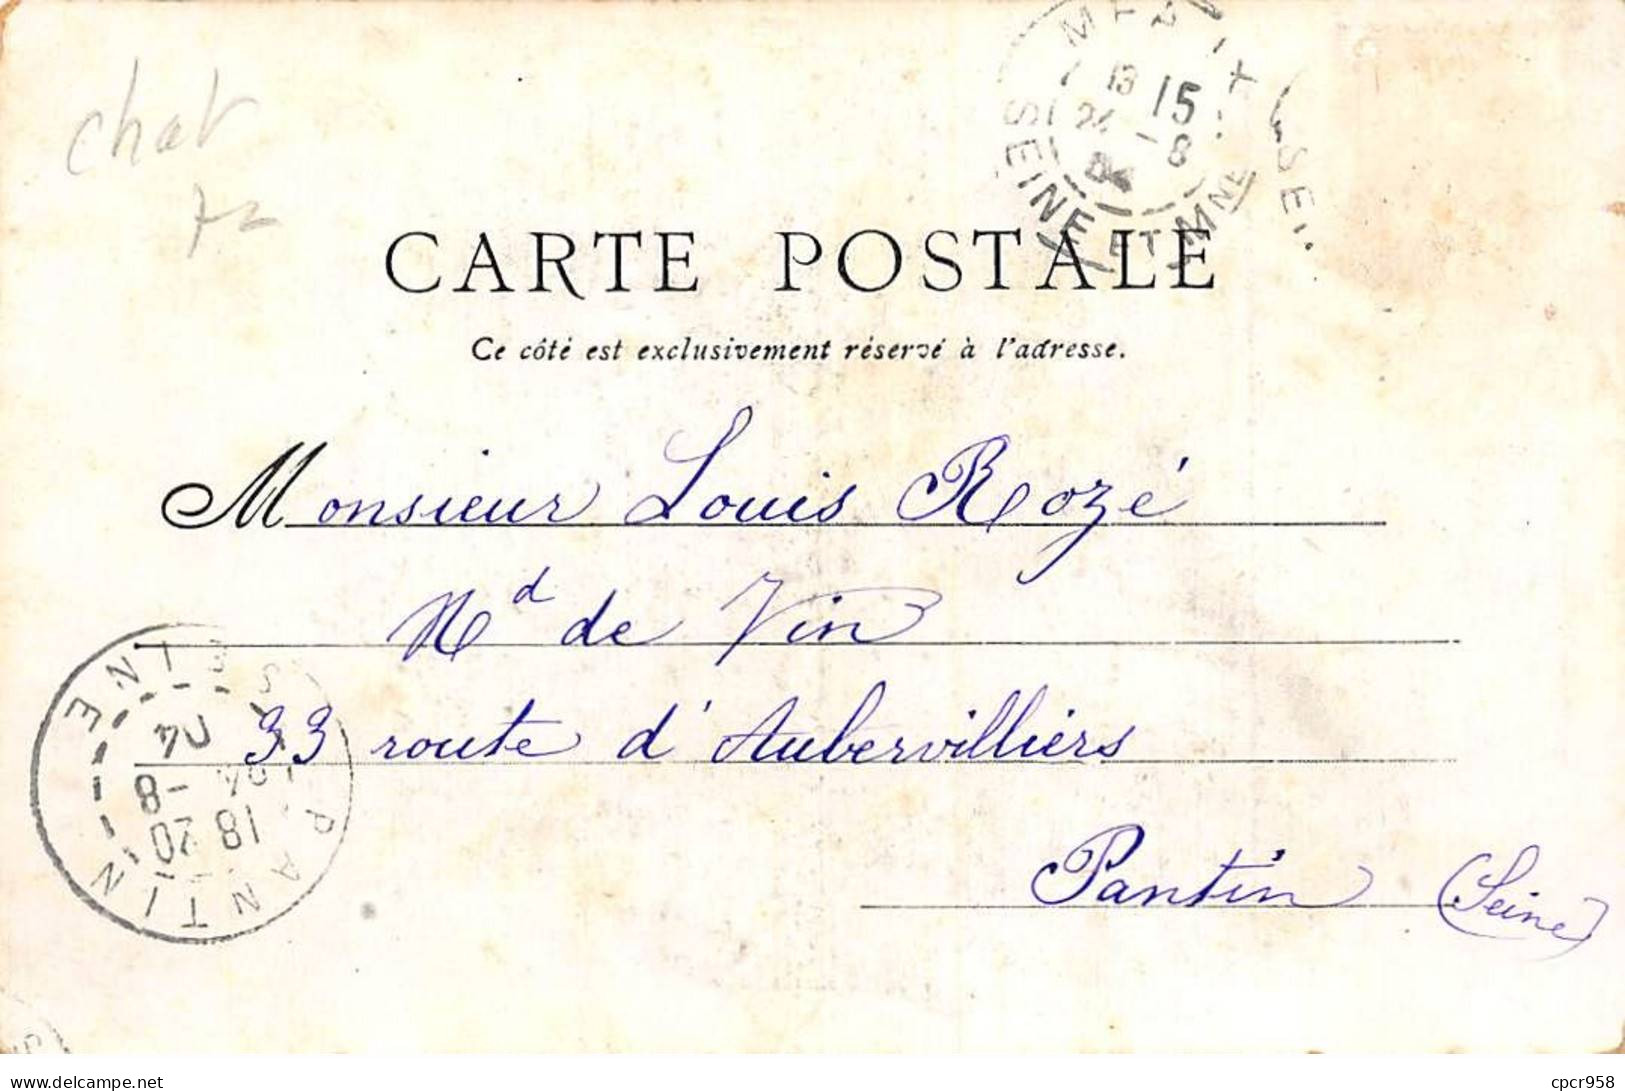 chat
72
15
24 - 8
04
SEINE ET MNE
CARTE POSTALE
Ce côté est exclusivement réservé à l'adresse.
Monsieur Louis Rozé
Md de Vin
33 route d'Aubervilliers
Pantin (Seine)
PANTIN SEINE
18 20
-8
04
cpcr958